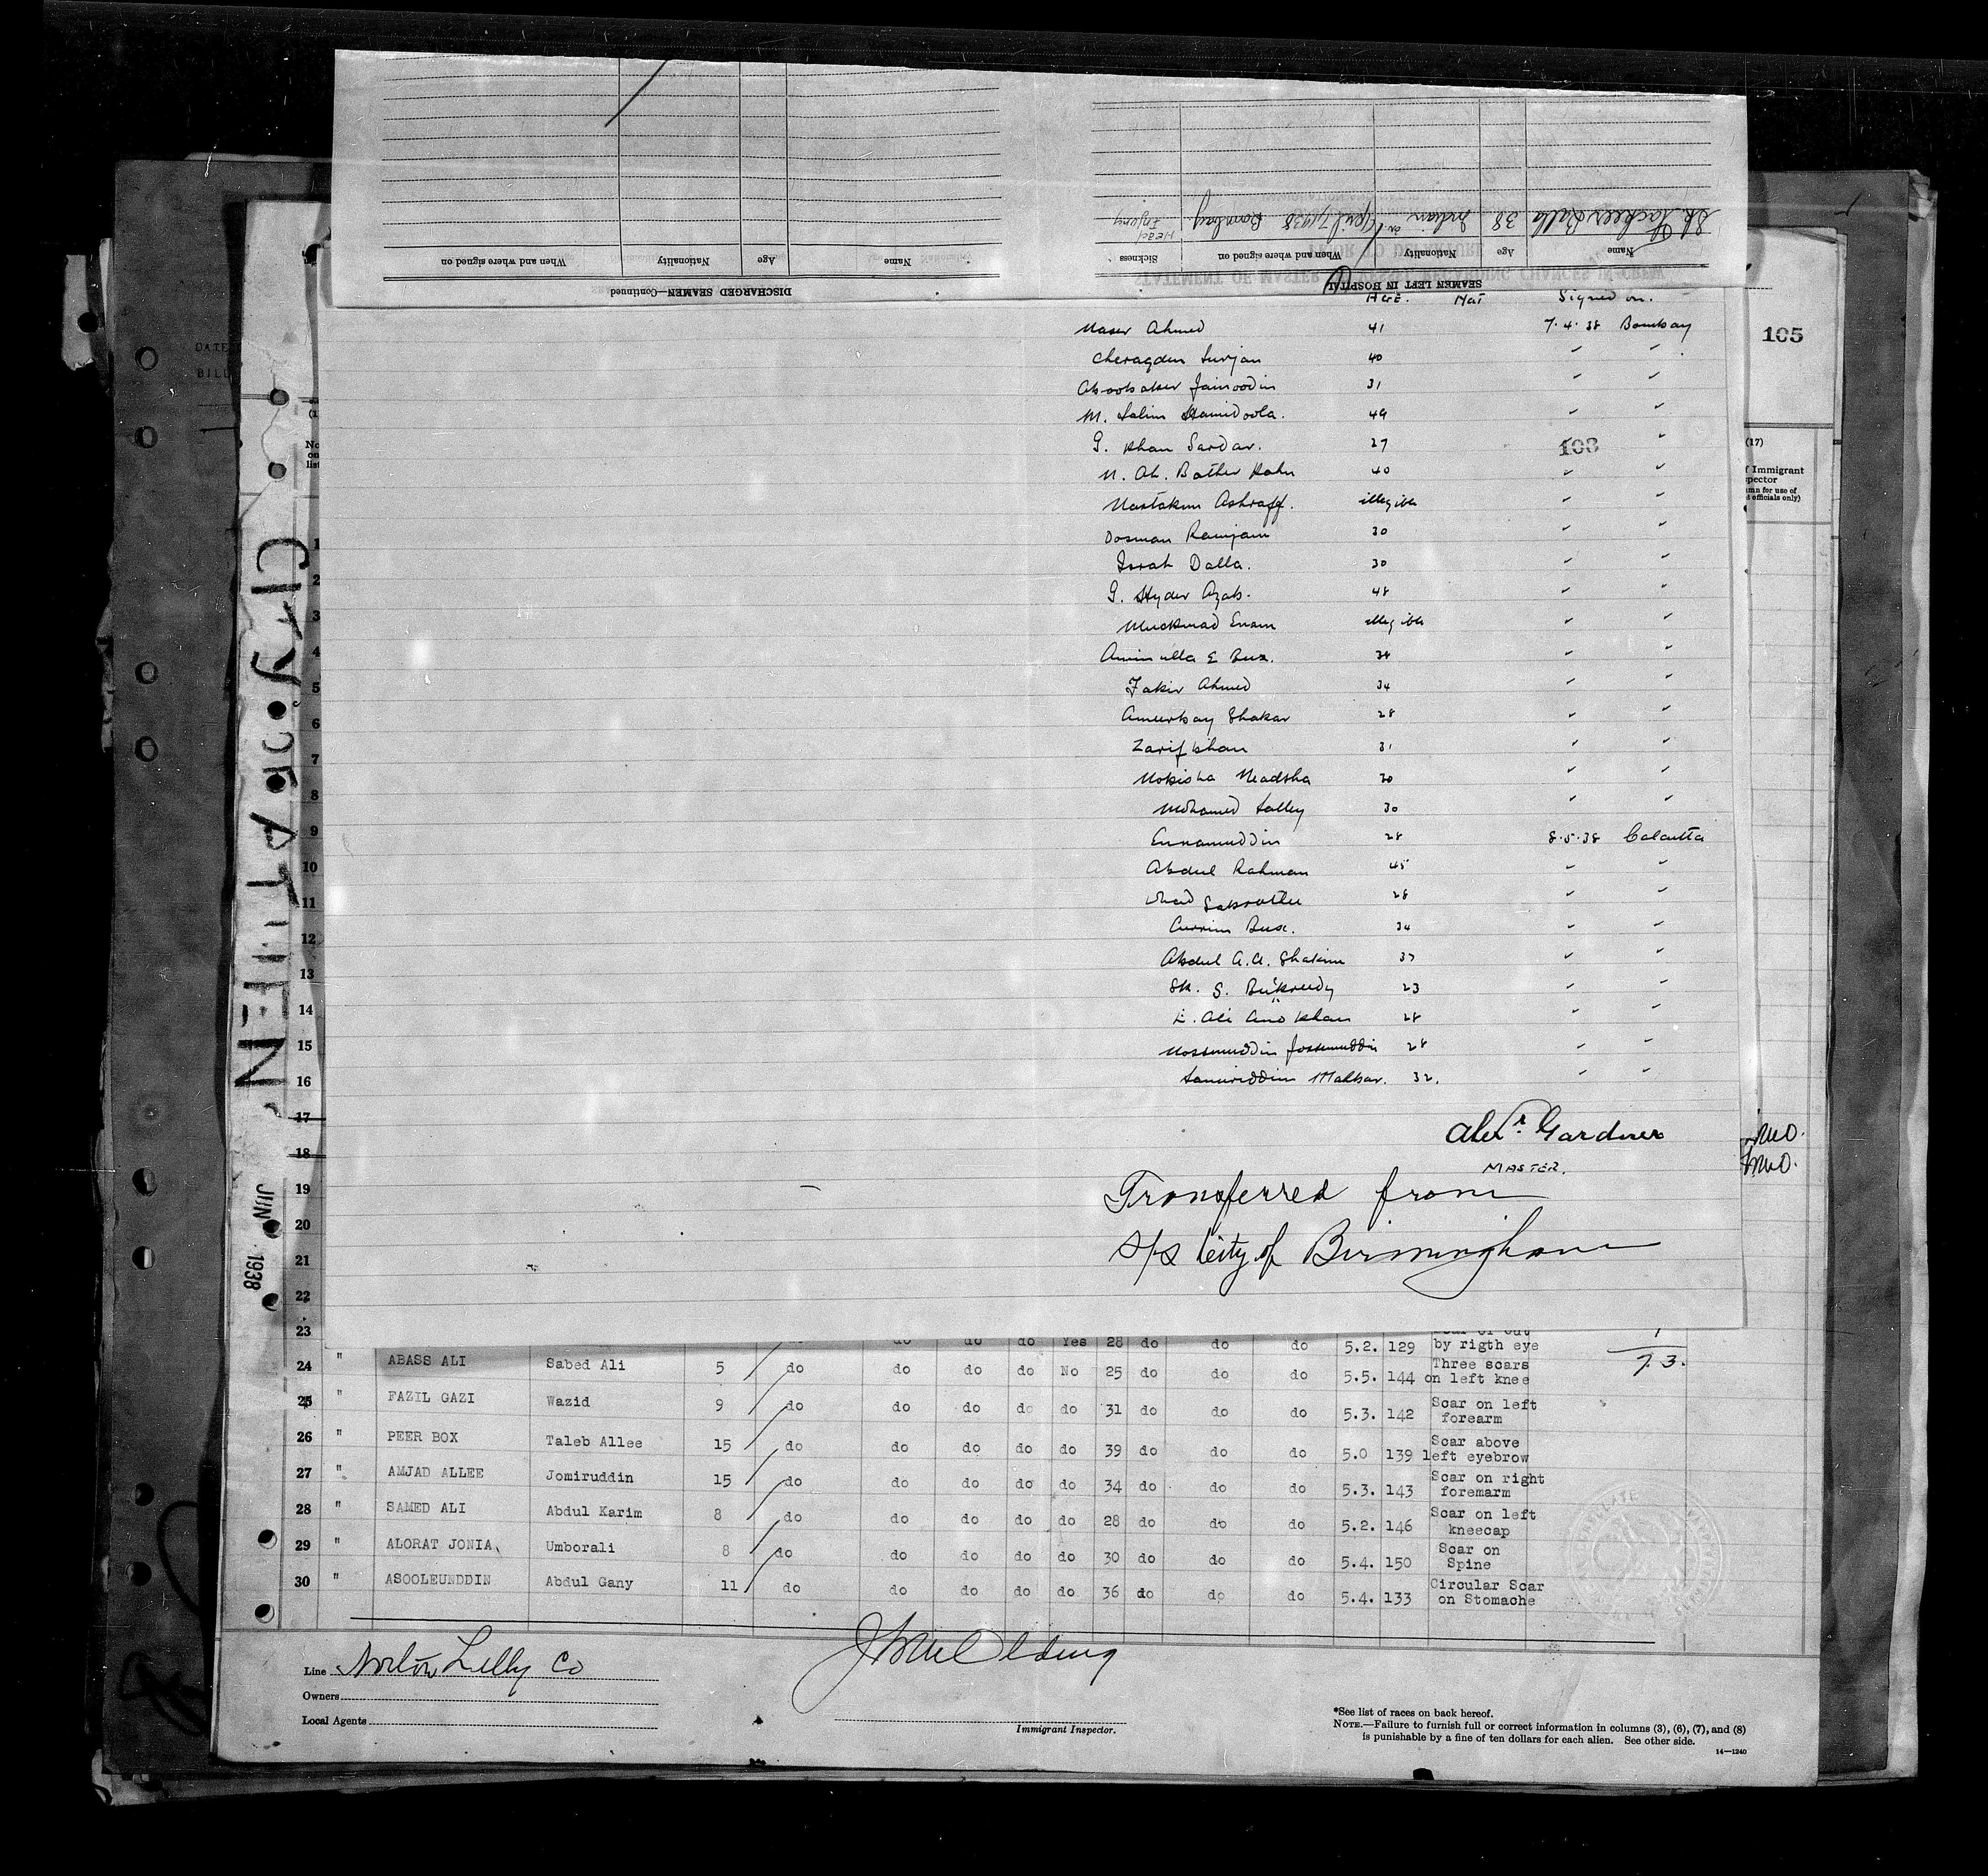 DISCHARGED SEAMEN—Continued
Name Age Nationality When and where signed on
SEAMEN LEFT IN HOSPITAL
Name Age Nationality When and where signed on Sickness
38 Indian on April 7, 1938 Bombay Head Injury
AGE. Nat Signed on.
Naser Ahmed 41 7.4.38 Bombay
Cheragdin Surjan 40 " "
Aboobaker Jainoodin 31 " "
M. Salim Hamidoola. 49 " "
G. Khan Sardar. 27 "
40 " "
Mastakim Ashraff. illegible " "
Oosman Ramjam 30 " "
Israk Dalla. 30 " "
G. Hyder Azab. 48 " "
Muckmad Enam illegible " "
Aminulla E Bux. 34 " "
Fakir Ahmed 34 " "
Ameerbay Shakar 28 " "
Zarif Khan 31 " "
Mokisha Meadsha 30 " "
Mohamed Salley 30 " "
Ennamuddin 28 8.5.38 Calcutta
Abdul Rahman 45 " "
28 " "
Currim Bux. 34 " "
Abdul A.A. Shakim 37 " "
Sk. S. 23 " "
Ali Khan 28 " "
28 " "
32. " "
Alexr. Gardner
MASTER.
Transferred from
S/S City of Birmingham
105
108
(17)
f Immigrant
spector
mn for use of
t officials only)
DATE
BILL
No
on
list
CITY OF
JUN 1938
1
2
3
4
5
6
7
8
9
10
11
12
13
14
15
16
17
18
19
20
21
22
23 do do do Yes 28 do do do 5.2. 129 by rigth eye
24 " ABASS ALI Sabed Ali 5 do do do do No 25 do do do 5.5. 144 Three scars on left knee 7.3.
25 " FAZIL GAZI Wazid 9 do do do do do 31 do do do 5.3. 142 Scar on left forearm
26 " PEER BOX Taleb Allee 15 do do do do do 39 do do do 5.0 139 Scar above left eyebrow
27 " AMJAD ALLEE Jomiruddin 15 do do do do do 34 do do do 5.3. 143 Scar on right foremarm
28 " SAMED ALI Abdul Karim 8 do do do do do 28 do do do 5.2. 146 Scar on left kneecap
29 " ALORAT JONIA Umborali 8 do do do do do 30 do do do 5.4. 150 Scar on Spine
30 " ASOOLEUNDDIN Abdul Gany 11 do do do do do 36 do do do 5.4. 133 Circular Scar on Stomache
Line Norton Lilly Co
Owners
Local Agents
Immigrant Inspector.
*See list of races on back hereof.
NOTE.—Failure to furnish full or correct information in columns (3), (6), (7), and (8)
is punishable by a fine of ten dollars for each alien. See other side.
14—1240